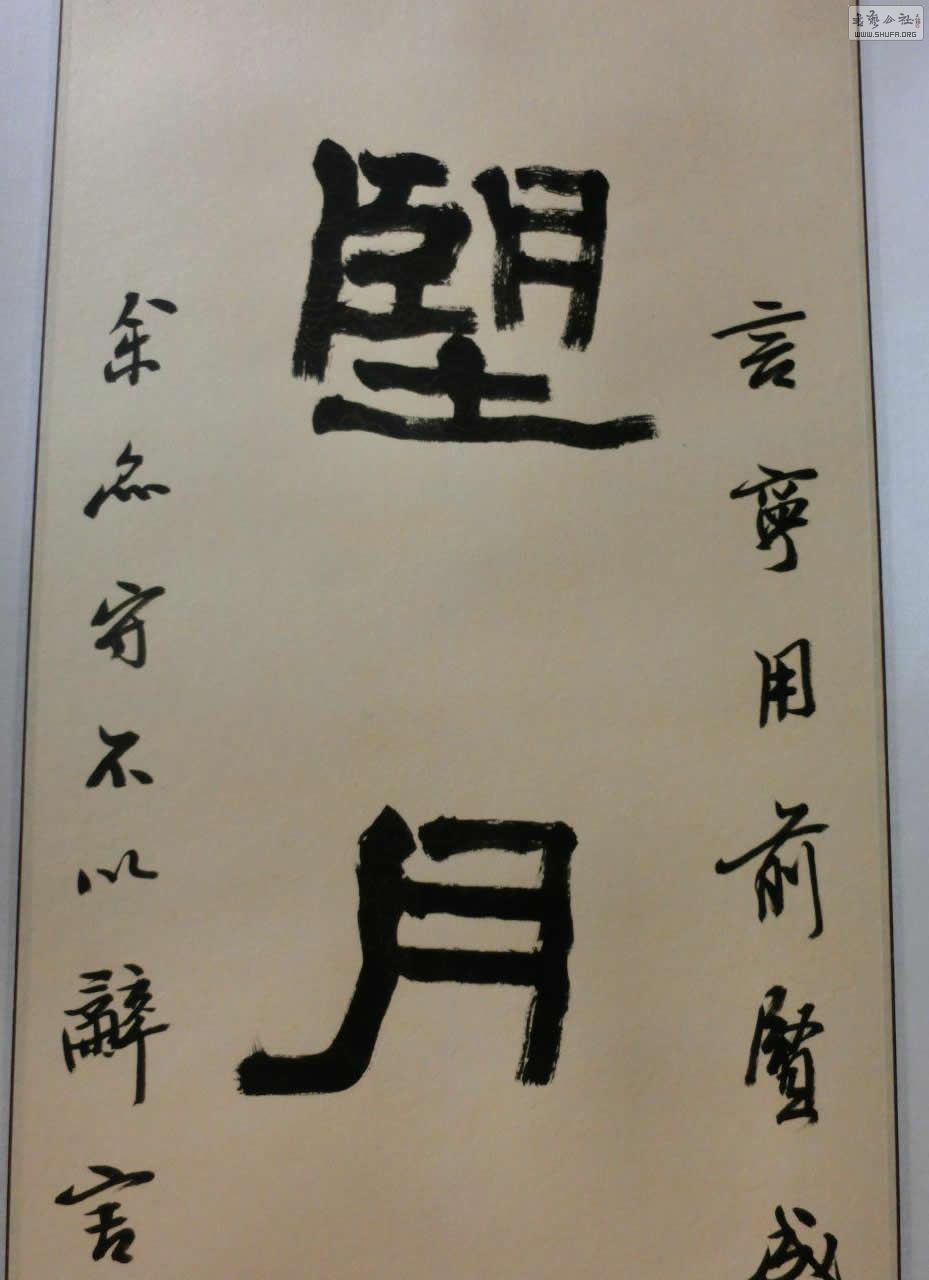 言寧用前賢成
朢月
余名守不以辭害
書藝公社
WWW.SHUFA.ORG